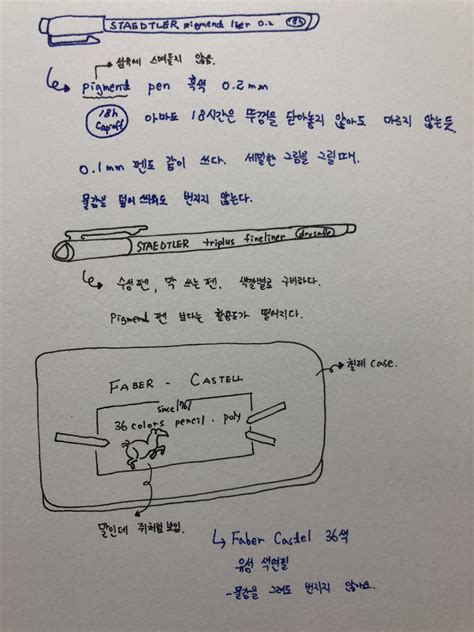 STAEDTLER pigment liner 0.2 18h
섬유에 스며들지 않음.
pigment pen 흑색 0.2mm
18h Capoff 아마도 18시간은 뚜껑을 닫아놓지 않아도 마르지 않는듯.
0.1mm 펜도 같이 쓰다. 세밀한 그림을 그릴때.
물감을 덮어 씌워도 번지지 않는다.
STAEDTLER triplus fineliner dry safe
수성펜, 막 쓰는 펜. 색깔별로 구비하다.
Pigment 펜 보다는 활용도가 떨어지다.
철제 case.
FABER - CASTELL
since 1761
36 colors pencil · poly
말인데 쥐처럼 보임.
Faber Castel 36색
유성 색연필
- 물감을 그려도 번지지 않아요.